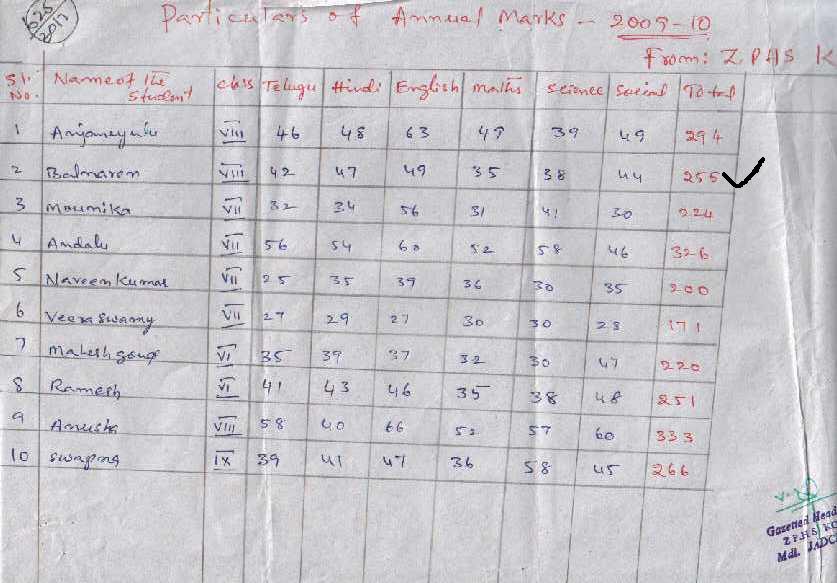 625
2017
Particulars of Annual Marks - 2009-10
From: ZPHS K
Sl. No. Name of the Student Class Telugu Hindi English Maths Science Social Total
1 Anjaneyulu VIII 46 48 63 49 39 49 294
2 Balnaren VIII 42 47 49 35 38 44 255
3 Mounika VII 32 34 56 31 41 30 224
4 Andalu VII 56 54 60 52 58 46 326
5 Naveen Kumar VII 25 35 39 36 30 35 200
6 Veeraswamy VII 27 29 27 30 30 28 171
7 Mahesh goud VI 35 39 37 32 30 47 220
8 Ramesh VI 41 43 46 35 38 48 251
9 Anusha VIII 58 40 66 52 57 60 333
10 Swapna IX 39 41 47 36 58 45 266
Gazetted Head
Z.P.H.S. KO
Mdl. JADC